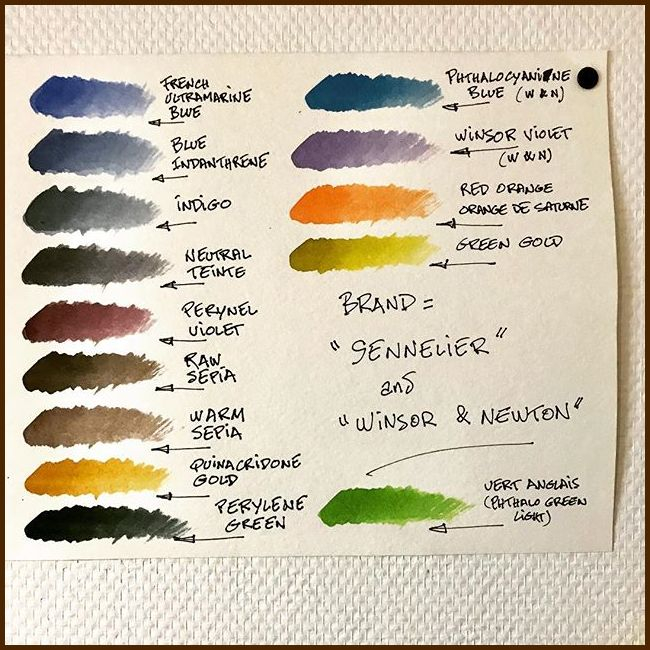 FRENCH
ULTRAMARINE
BLUE
BLUE
INDANTHRENE
INDIGO
NEUTRAL
TEINTE
PERYNEL
VIOLET
RAW
SEPIA
WARM
SEPIA
QUINACRIDONE
GOLD
PERYLENE
GREEN
PHTHALOCYANINE
BLUE (W & N)
WINSOR VIOLET
(W & N)
RED ORANGE
ORANGE DE SATURNE
GREEN GOLD
BRAND =
"SENNELIER"
and
"WINSOR & NEWTON"
VERT ANGLAIS
(PHTHALO GREEN
LIGHT)